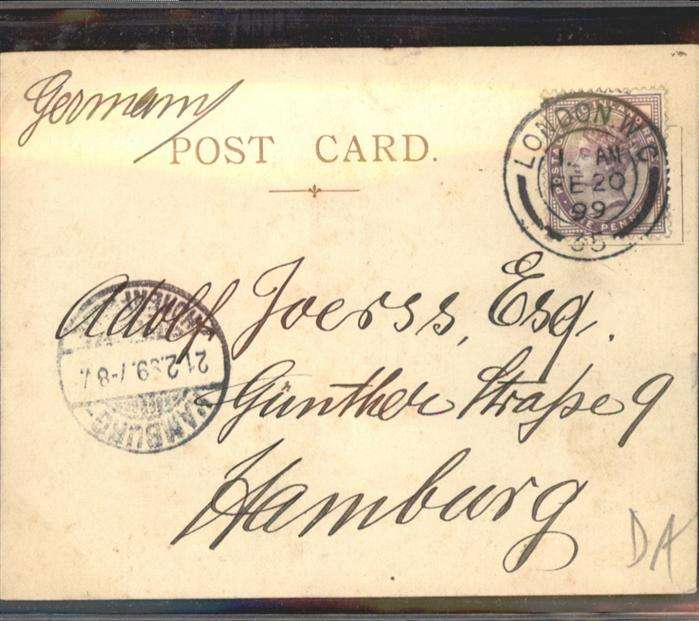 Germany
POST CARD.
LONDON W.C
AM
FE 20
99
35
POSTAGE
ONE PENNY
Adolf Joerss, Esq.
Günther Straße 9
Hamburg
HAMBURG
21.2.99.7-8
DA